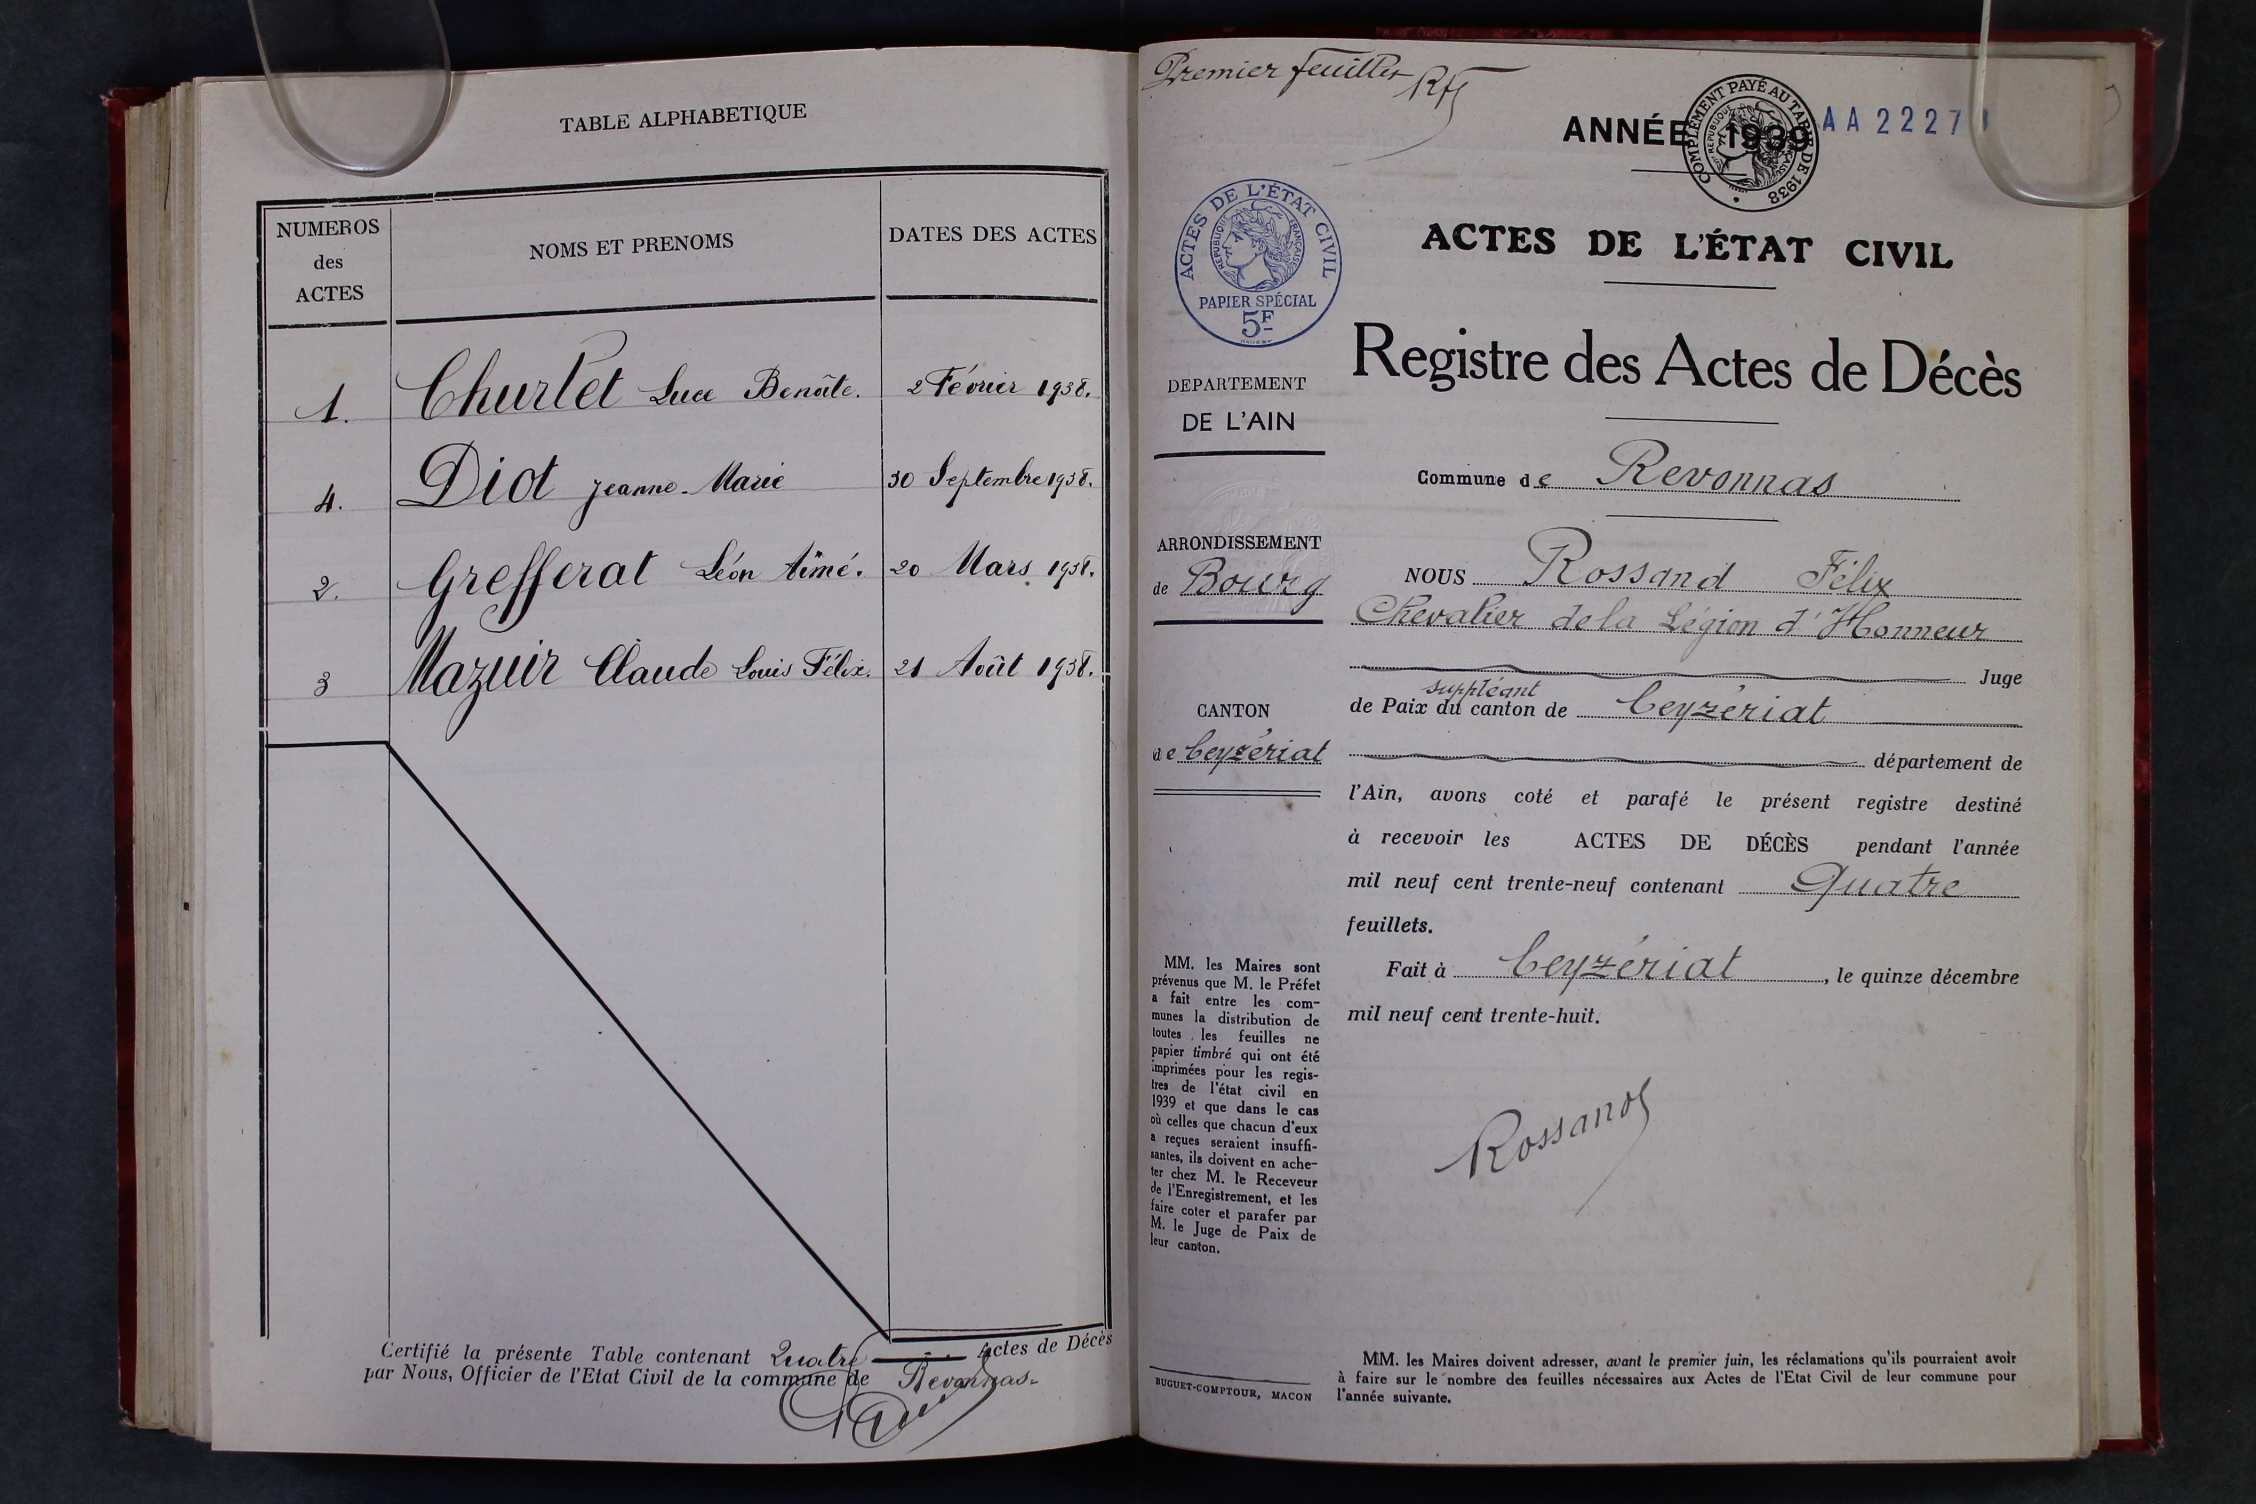 TABLE ALPHABETIQUE
NUMEROS
des
ACTES
NOMS ET PRENOMS
DATES DES ACTES
1. Churlet Luce Benoîte. 2 Février 1938.
4. Diot Jeanne-Marie 30 Septembre 1938.
2. Grefferat Léon Aimé. 20 Mars 1938.
3 Mazuir Claude Louis Félix. 21 Août 1938.
Certifié la présente Table contenant Quatre Actes de Décès
par Nous, Officier de l'Etat Civil de la commune de Revonnas.
Premier feuillet
ANNÉE 1939
COMPLÉMENT PAYÉ AU TARIF DE 1938
AA 2227
ACTES DE L'ÉTAT CIVIL
REPUBLIQUE FRANÇAISE
PAPIER SPÉCIAL
5F
DEPARTEMENT
DE L'AIN
ARRONDISSEMENT
de Bourg
CANTON
de Ceyzériat
MM. les Maires sont
prévenus que M. le Préfet
a fait entre les com-
munes la distribution de
toutes les feuilles ne
papier timbré qui ont été
imprimées pour les regis-
tres de l'état civil en
1939 et que dans le cas
où celles que chacun d'eux
a reçues seraient insuffi-
santes, ils doivent en ache-
ter chez M. le Receveur
de l'Enregistrement, et les
faire coter et parafer par
M. le Juge de Paix de
leur canton.
BUGUET-COMPTOUR, MACON
ACTES DE L'ÉTAT CIVIL
Registre des Actes de Décès
Commune de Revonnas
NOUS Rossand Félix
Chevalier de la Légion d'Honneur
Juge
suppléant
de Paix du canton de Ceyzériat
département de
l'Ain, avons coté et parafé le présent registre destiné
à recevoir les ACTES DE DÉCÈS pendant l'année
mil neuf cent trente-neuf contenant Quatre
feuillets.
Fait à Ceyzériat, le quinze décembre
mil neuf cent trente-huit.
Rossand
MM. les Maires doivent adresser, avant le premier juin, les réclamations qu'ils pourraient avoir
à faire sur le nombre des feuilles nécessaires aux Actes de l'Etat Civil de leur commune pour
l'année suivante.